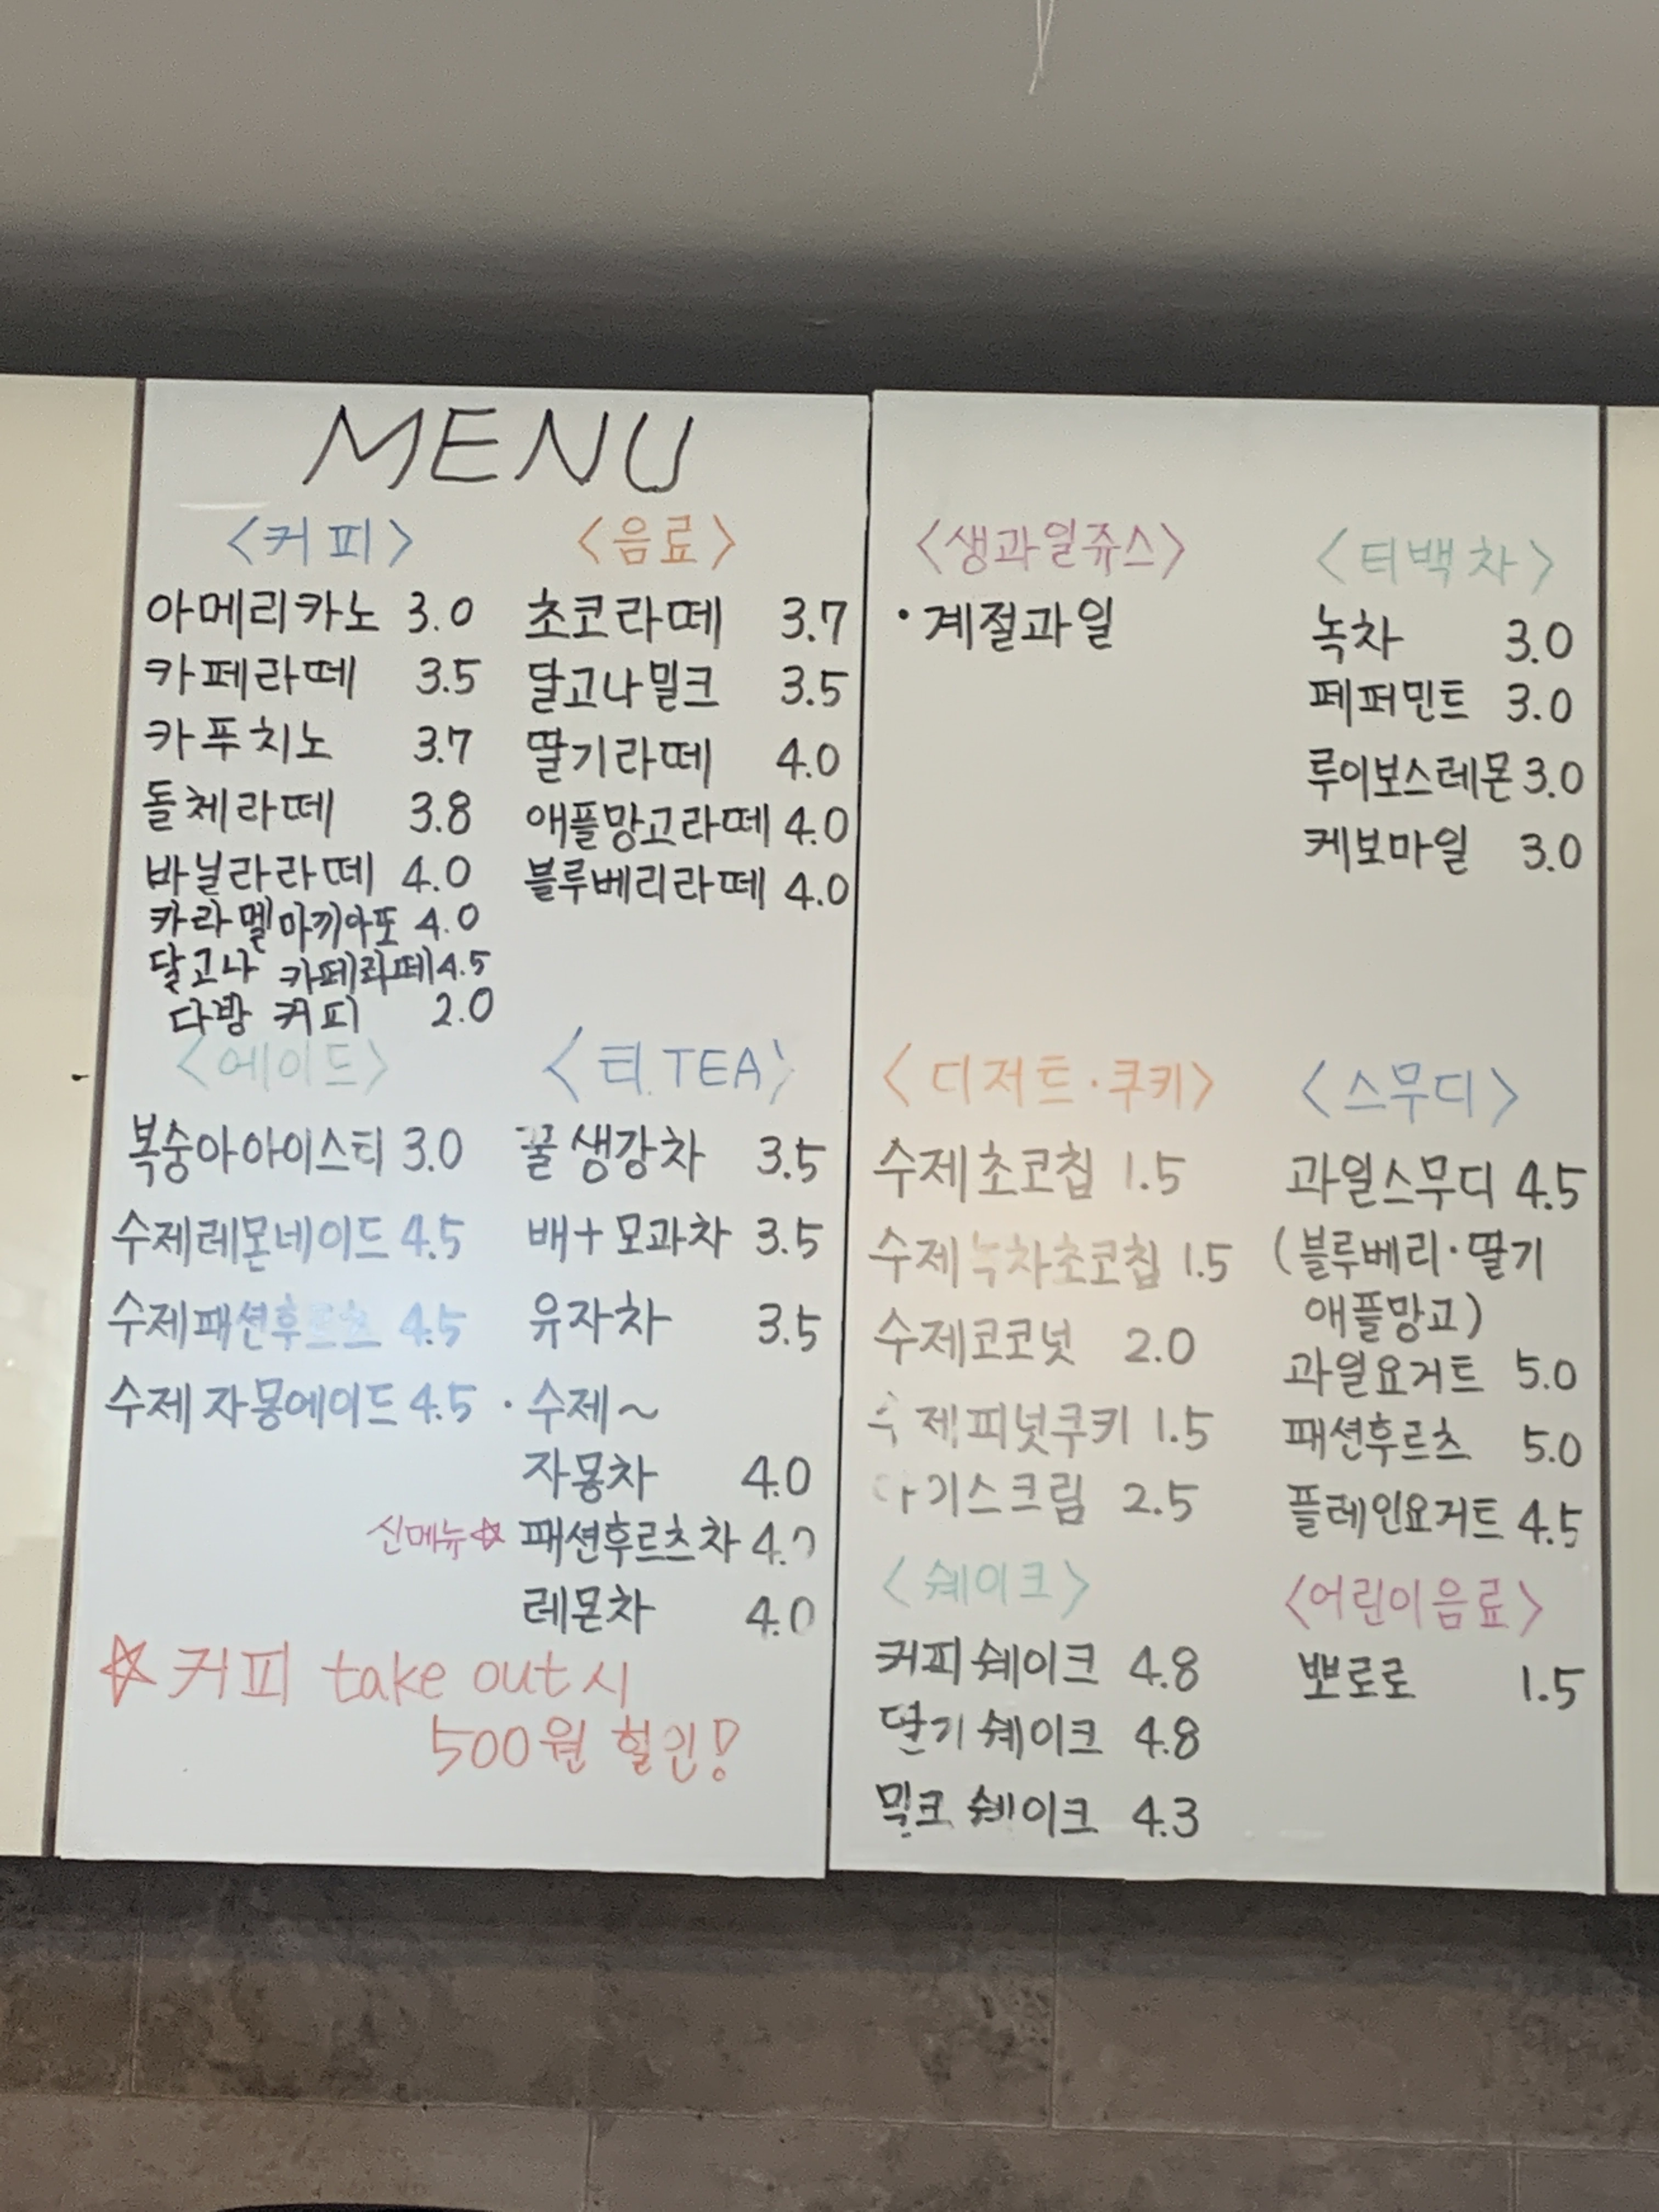 MENU
<커피>
아메리카노 3.0
카페라떼 3.5
카푸치노 3.7
돌체라떼 3.8
바닐라라떼 4.0
카라멜마끼아또 4.0
달고나 카페라떼 4.5
다방 커피 2.0
<음료>
초코라떼 3.7
달고나밀크 3.5
딸기라떼 4.0
애플망고라떼 4.0
블루베리라떼 4.0
<에이드>
복숭아아이스티 3.0
수제레몬네이드 4.5
수제패션후르츠 4.5
수제자몽에이드 4.5
<티.TEA>
꿀생강차 3.5
배+모과차 3.5
유자차 3.5
·수제~
자몽차 4.0
신메뉴☆ 패션후르츠차 4.0
레몬차 4.0
☆커피 take out시
500원 할인!
<생과일쥬스>
·계절과일
<티백차>
녹차 3.0
페퍼민트 3.0
루이보스레몬 3.0
케보마일 3.0
<디저트·쿠키>
수제초코칩 1.5
수제녹차초코칩 1.5
수제코코넛 2.0
수제피넛쿠키 1.5
2.5
<스무디>
과일스무디 4.5
(블루베리·딸기
애플망고)
과일요거트 5.0
패션후르츠 5.0
플레인요거트 4.5
<쉐이크>
커피쉐이크 4.8
딸기쉐이크 4.8
밀크쉐이크 4.3
<어린이음료>
뽀로로 1.5